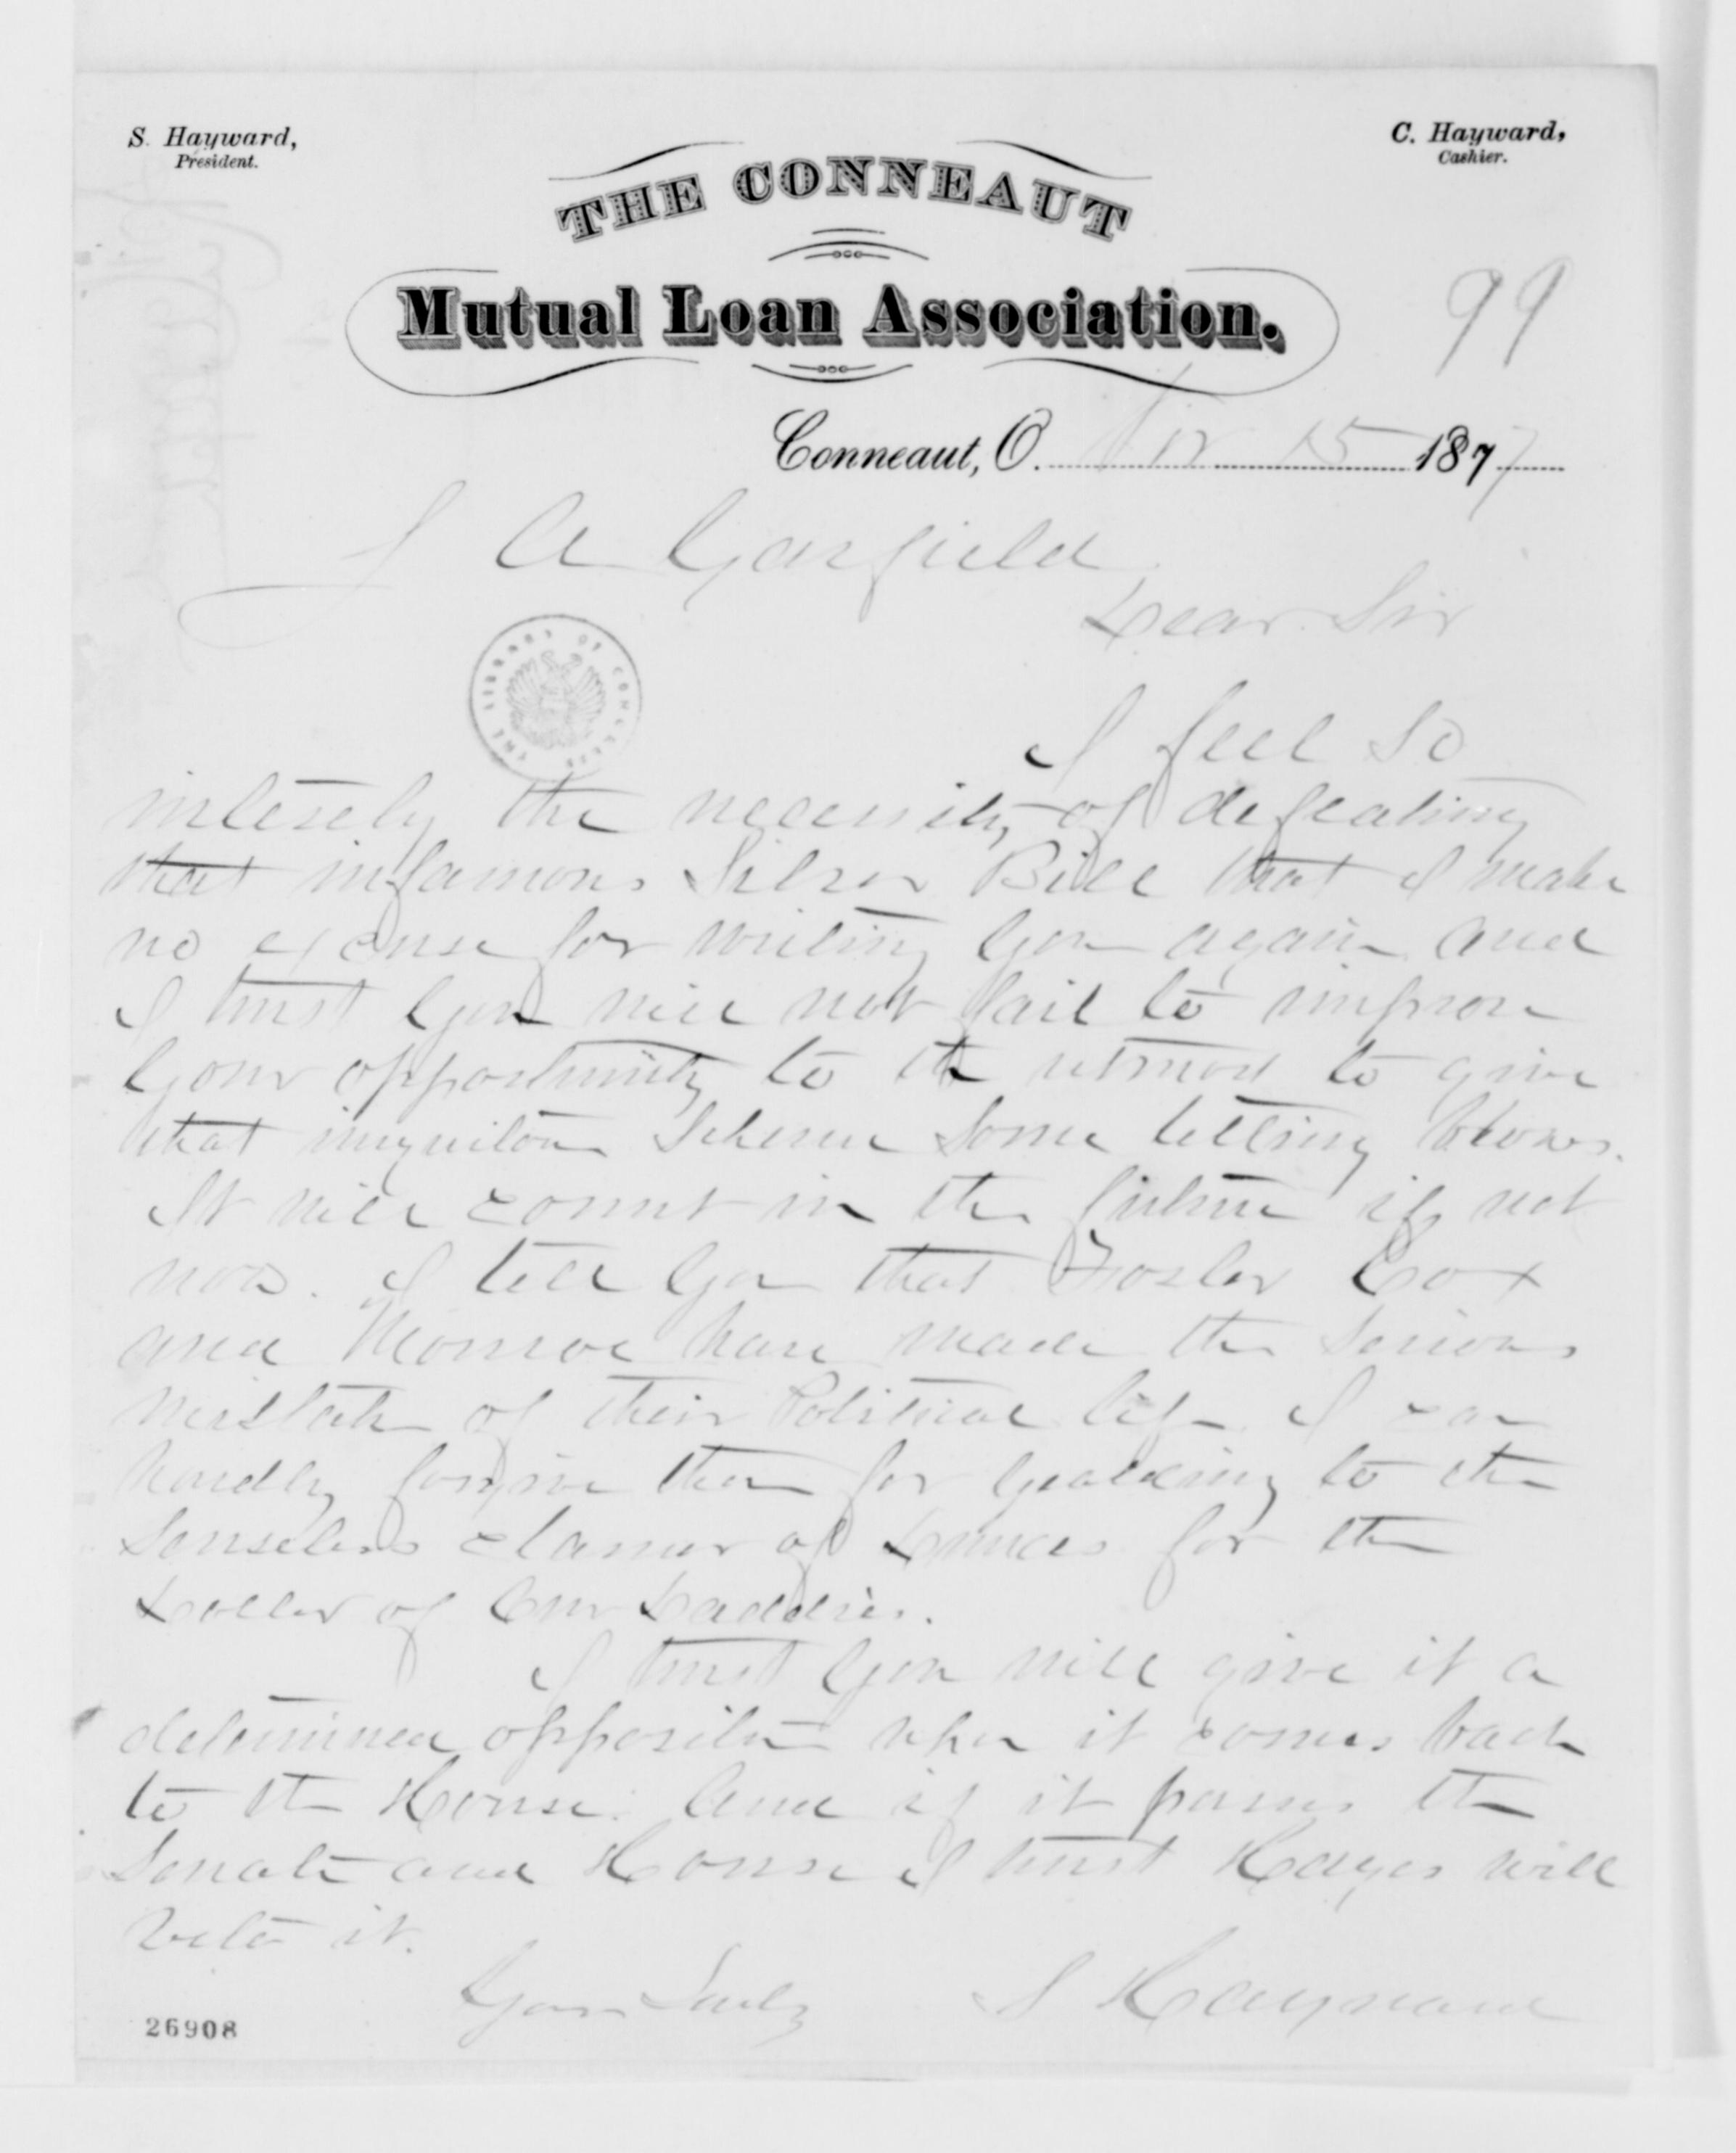 S. Hayward,
President.
C. Hayward,
Cashier.
THE CONNEAUT
Mutual Loan Association.
99
Conneaut, O. Nov 15 1877
J A Garfield
Dear Sir
I feel so
intesely the necessity of defeating
that infamous Silver Bill that I make
no excuse for writing you again and
I trust you will not fail to improve
your opportunity to the utmost to give
that iniquitous Scheme some telling blows.
It will count in the future if not
now. I tell you that Foster Cox
and Monroe have made the serious
mistake of their Political life I can
hardly forgive them for yealding to the
senseless clamor of Dunces for the
Doller of Our Daddies.
I trust you will give it a
determined opposition when it comes back
to the House. And if it passes the
Senate and House I trust Hayes will
veto it.
Yours Truly S Hayward
26908
THE LIBRARY OF CONGRESS